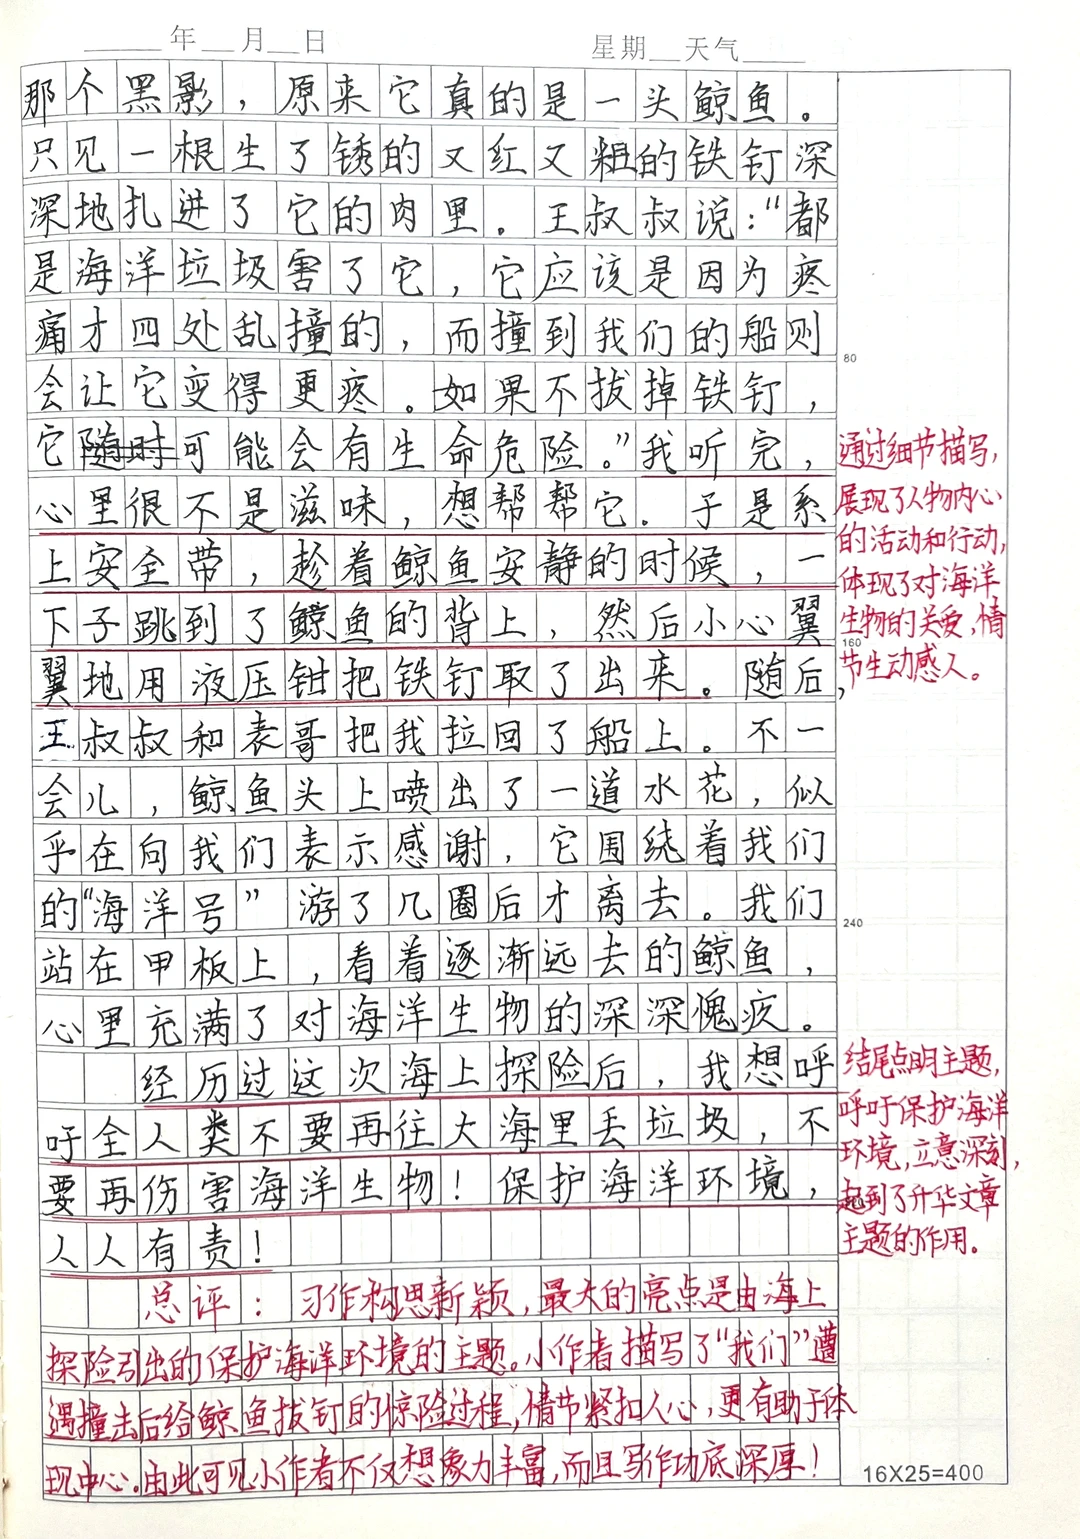 ____年__月__日 星期__天气____
那个黑影，原来它真的是一头鲸鱼。
只见一根生了锈的又红又粗的铁钉深
深地扎进了它的肉里。王叔叔说：“都
是海洋垃圾害了它，它应该是因为疼
痛才四处乱撞的，而撞到我们的船则
80
会让它变得更疼。如果不拔掉铁钉，
它随时可能会有生命危险。”我听完，
心里很不是滋味，想帮帮它。于是系
上安全带，趁着鲸鱼安静的时候，一
下子跳到了鲸鱼的背上，然后小心翼
160
翼地用液压钳把铁钉取了出来。随后，
王叔叔和表哥把我拉回了船上。不一
会儿，鲸鱼头上喷出了一道水花，似
乎在向我们表示感谢，它围绕着我们
的“海洋号”游了几圈后才离去。我们
240
站在甲板上，看着逐渐远去的鲸鱼，
心里充满了对海洋生物的深深愧疚。
经历过这次海上探险后，我想呼
吁全人类不要再往大海里丢垃圾，不
要再伤害海洋生物！保护海洋环境，
人人有责！
通过细节描写，
展现了人物内心
的活动和行动，
体现了对海洋
生物的关爱，情
节生动感人。
结尾点明主题，
呼吁保护海洋
环境，立意深刻，
起到了升华文章
主题的作用。
总评：习作构思新颖，最大的亮点是由海上
探险引出的保护海洋环境的主题。小作者描写了“我们”遭
遇撞击后给鲸鱼拔钉的惊险过程，情节紧扣人心，更有助于体
现中心。由此可见小作者不仅想象力丰富，而且写作功底深厚！
16X25=400